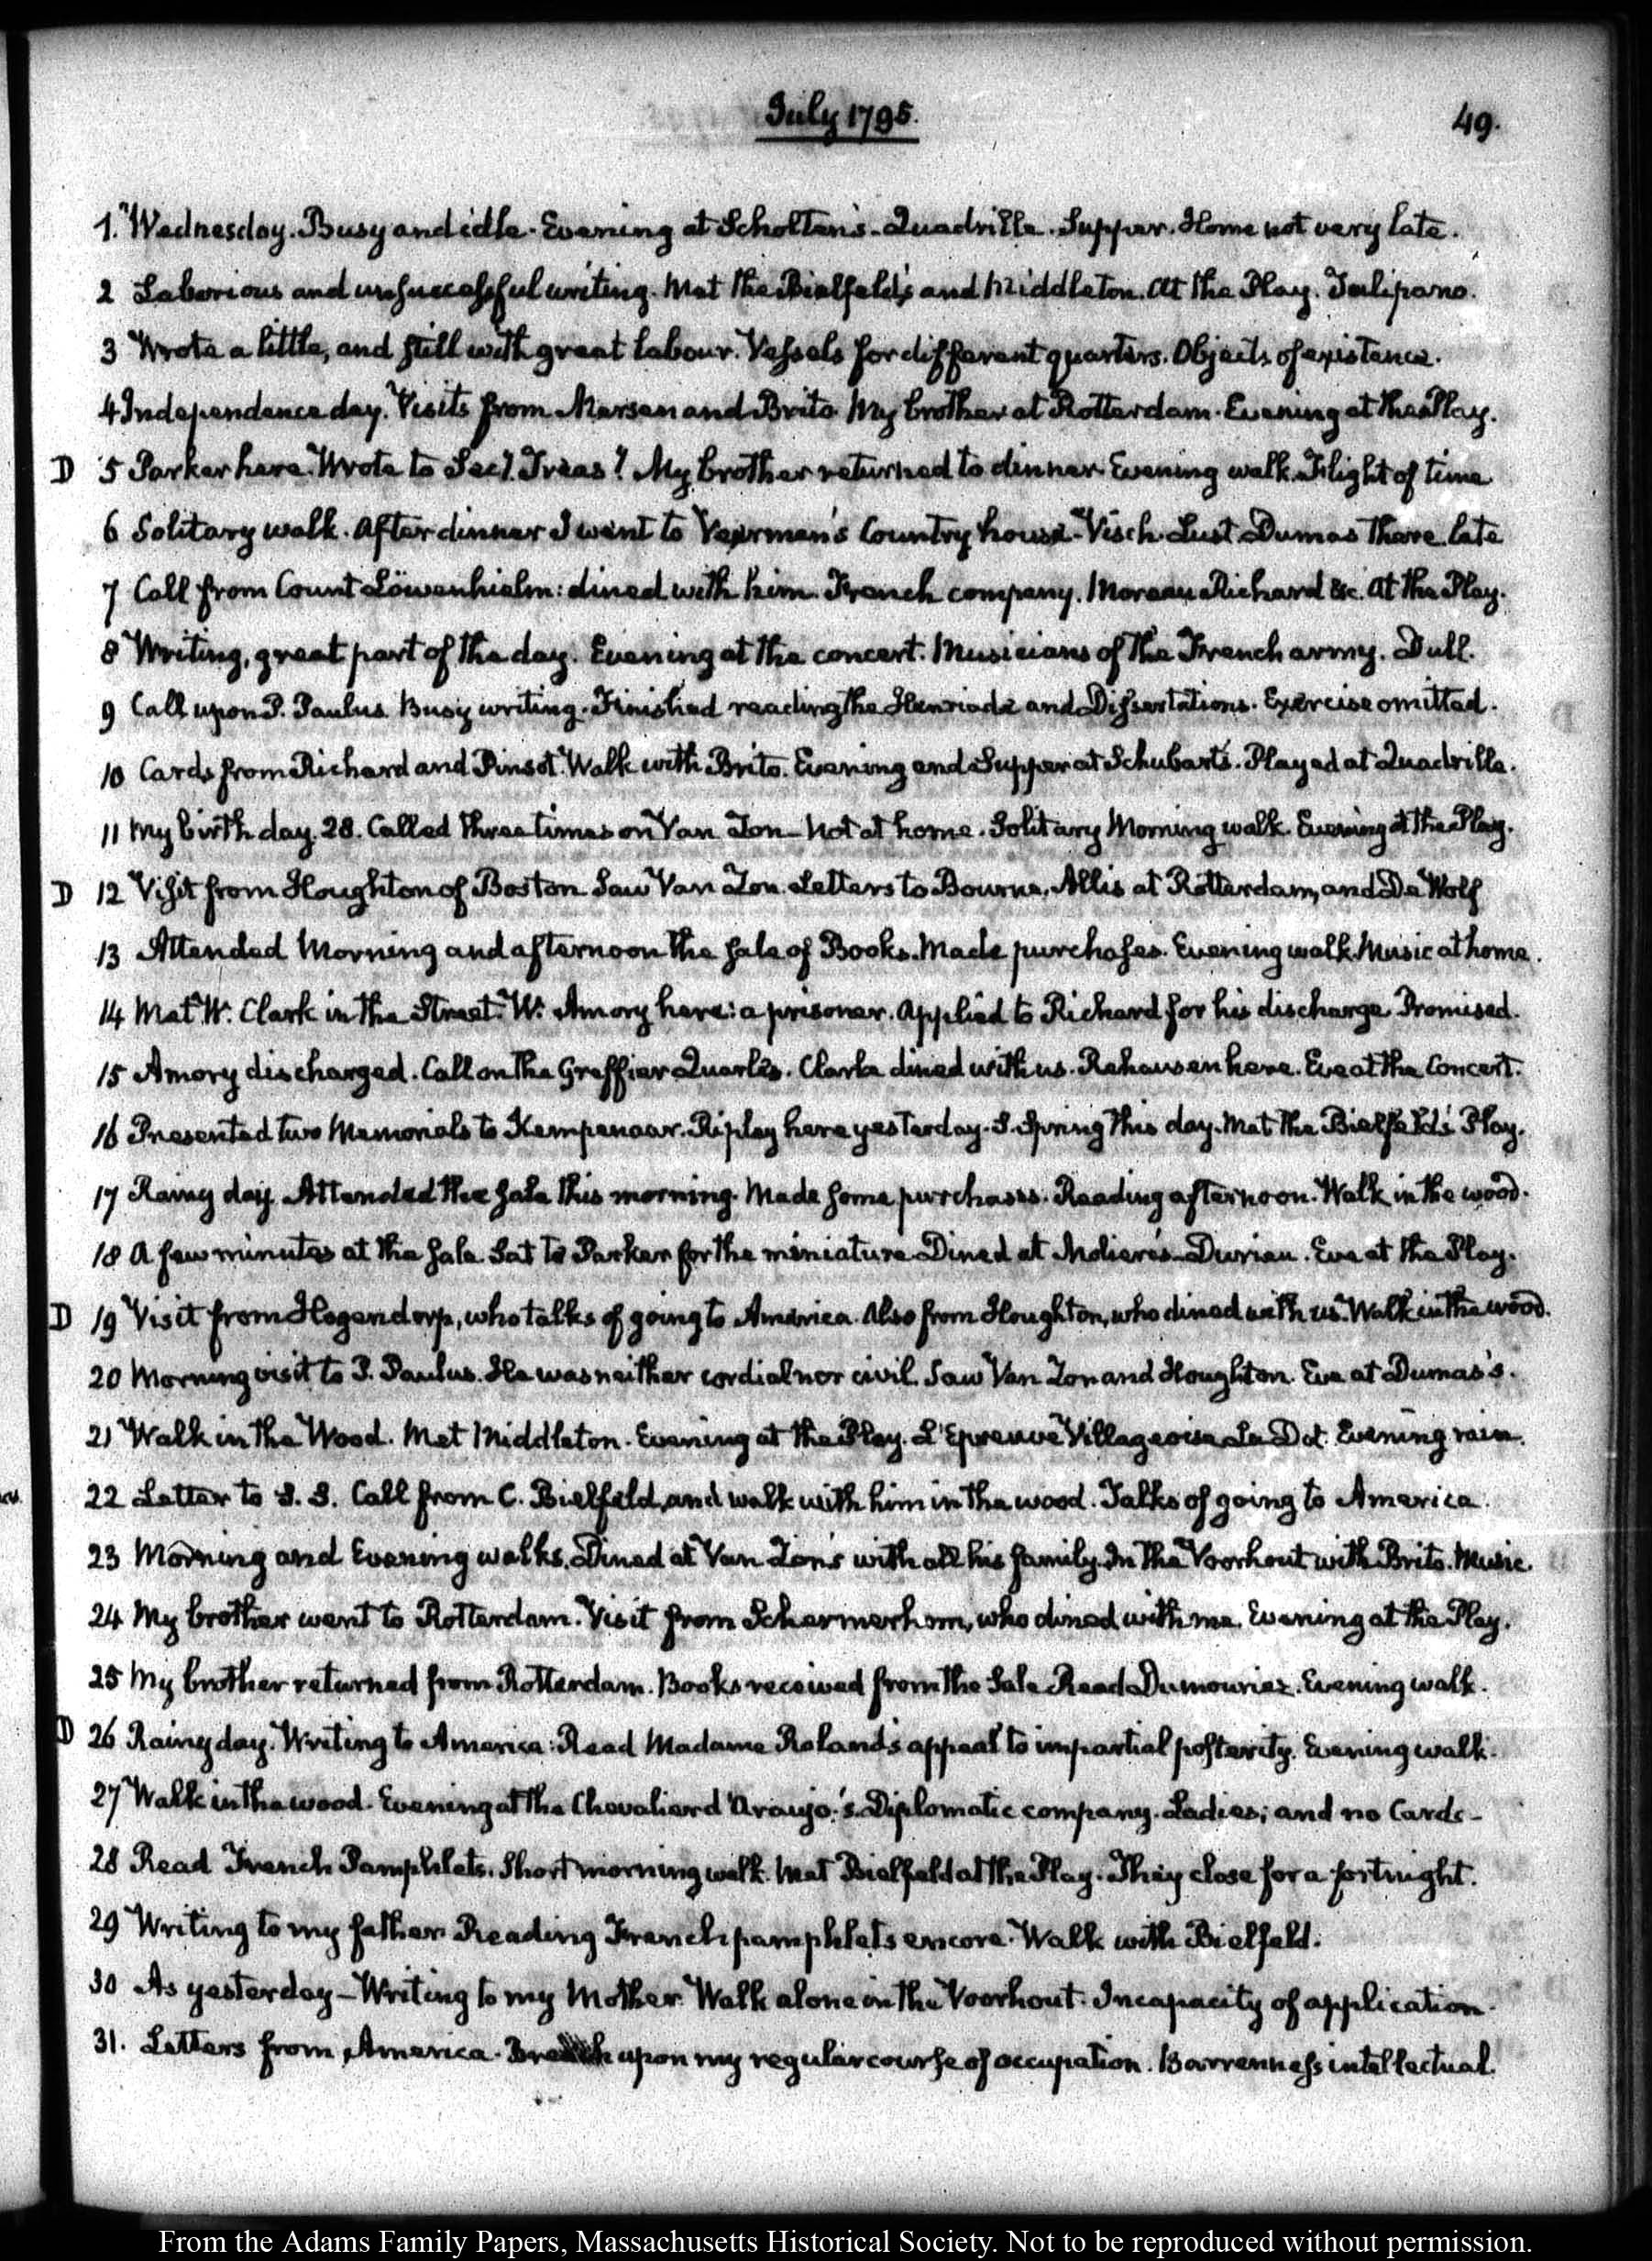 July 1795.
49.
1. Wednesday. Busy and idle. Evening at Scholten's. Quadrille. Supper. Home not very late.
2 Laborious and unsuccessful writing. Met the Bielfeld's and Middleton. At the Play. Tulipano.
3 Wrote a little, and still with great labour. Vessels for different quarters. Objects of existence.
4 Independence day. Visits from Marsen and Brito. My brother at Rotterdam. Evening at the Play.
D 5 Parker here. Wrote to Secy. Treasy. My brother returned to dinner. Evening walk. Flight of time
6 Solitary walk. After dinner I went to Veerman's Country house. Visch. Lust. Dumas there. late
7 Call from Count Löwenhielm: dined with him. French company. Moreau Richard &c. At the Play.
8 Writing, great part of the day. Evening at the concert. Musicians of the French army. Dull.
9 Call upon P. Paulus. Busy writing. Finished reading the Henriade and Dissertations. Exercise omitted.
10 Cards from Richard and Pinsot. Walk with Brito. Evening and Supper at Schubart's. Played at Quadrille.
11 My birth day. 28. Called three times on Van Son - Not at home. Solitary Morning walk. Evening at the Play.
D 12 Visit from Houghton of Boston Saw Van Son. Letters to Bourne, Allis at Rotterdam, and De Wolf
13 Attended Morning and afternoon the sale of Books. Made purchases. Evening walk. Music at home.
14 Met W. Clark in the Street. W. Amory here: a prisoner. Applied to Richard for his discharge. Promised.
15 Amory discharged. Call on the Greffier Quarles. Clarke dined with us. Rehausen here. Eve at the Concert.
16 Presented two Memorials to Kempenaar. Ripley here yesterday. S. Spring this day. Met the Bielfeld's Play.
17 Rainy day. Attended the sale this morning. Made some purchases. Reading afternoon. Walk in the wood.
18 A few minutes at the sale. Sat to Parker for the miniature. Dined at Moliere's. Durieu. Eve at the Play.
D 19 Visit from Hogendorp, who talks of going to America. Also from Houghton, who dined with us. Walk in the wood.
20 Morning visit to P. Paulus. He was neither cordial nor civil. Saw Van Son and Houghton. Eve at Dumas's.
21 Walk in the Wood. Met Middleton. Evening at the Play. L'Epreuve Villageoise La Dot. Evening rain.
22 Letter to S. S. Call from C. Bielfeld, and walk with him in the wood. Talks of going to America.
23 Morning and Evening walks. Dined at Van Son's with all his family. In the Voorhout with Brito. Music.
24 My brother went to Rotterdam. Visit from Schermerhorn, who dined with me. Evening at the Play.
25 My brother returned from Rotterdam. Books received from the Sale. Read Dumouriez. Evening walk.
D 26 Rainy day. Writing to America. Read Madame Roland's appeal to impartial posterity. Evening walk.
27 Walk in the wood. Evening at the Chevalier d'Araujo's. Diplomatic company. Ladies; and no Cards -
28 Read French Pamphlets. Short morning walk. Met Bielfeld at the Play. They close for a fortnight.
29 Writing to my father. Reading French pamphlets encore. Walk with Bielfeld.
30 As yesterday - Writing to my Mother. Walk alone in the Voorhout. Incapacity of application.
31. Letters from America. Breach upon my regular course of occupation. Barrenness intellectual.
From the Adams Family Papers, Massachusetts Historical Society. Not to be reproduced without permission.